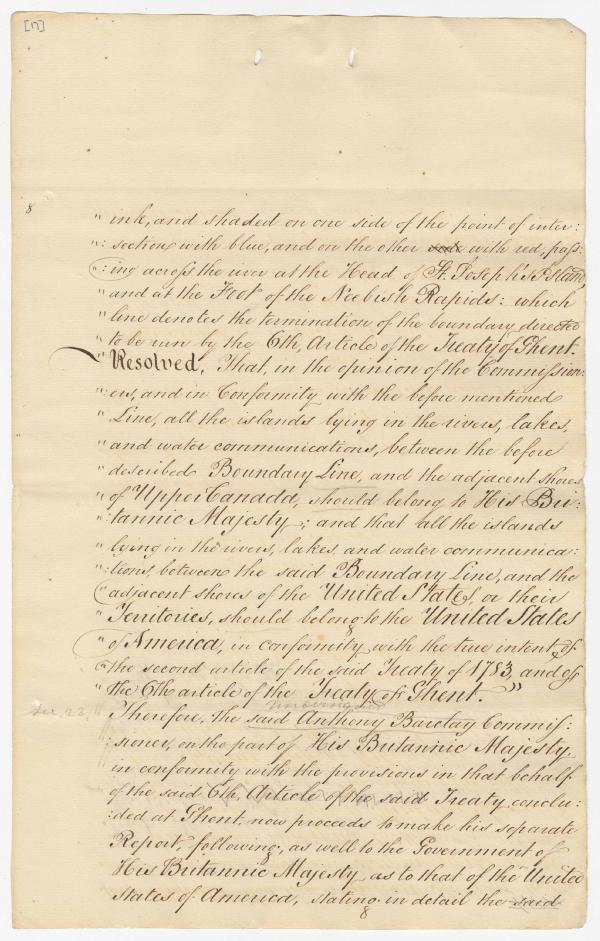 [17]
8
" ink, and shaded on one side of the point of inter:
": section with blue, and on the other side with red, pass:
": ing across the river at the Head of St. Joseph's Island,
" and at the Foot of the Neebish Rapids: which
" line denotes the termination of the boundary directed
" to be run by the 6th, Article of the Treaty of Ghent.
" Resolved, That, in the opinion of the Commission:
": ers, and in Conformity with the before mentioned
" Line, all the islands lying in the rivers, lakes,
" and water communications, between the before
" described Boundary Line, and the adjacent shores
" of Upper Canada, should belong to His Bri:
": tannic Majesty; and that all the islands
" lying in the rivers, lakes, and water communica:
": tions, between the said Boundary Line, and the
" adjacent shores of the United States, or their
" Territories, should belong to the United States
" of America, in conformity with the true intent of
" the second article of the said Treaty of 1783, and of
" the 6th article of the Treaty of Ghent."
Therefore, the said Anthony Barclay Commis:
: sioner, on the part of His Britannic Majesty,
in conformity with the provisions in that behalf
of the said 6th, Article of the said Treaty conclu:
: ded at Ghent, now proceeds to make his separate
Report, following, as well to the Government of
His Britannic Majesty as to that of the United
States of America, stating in detail the said